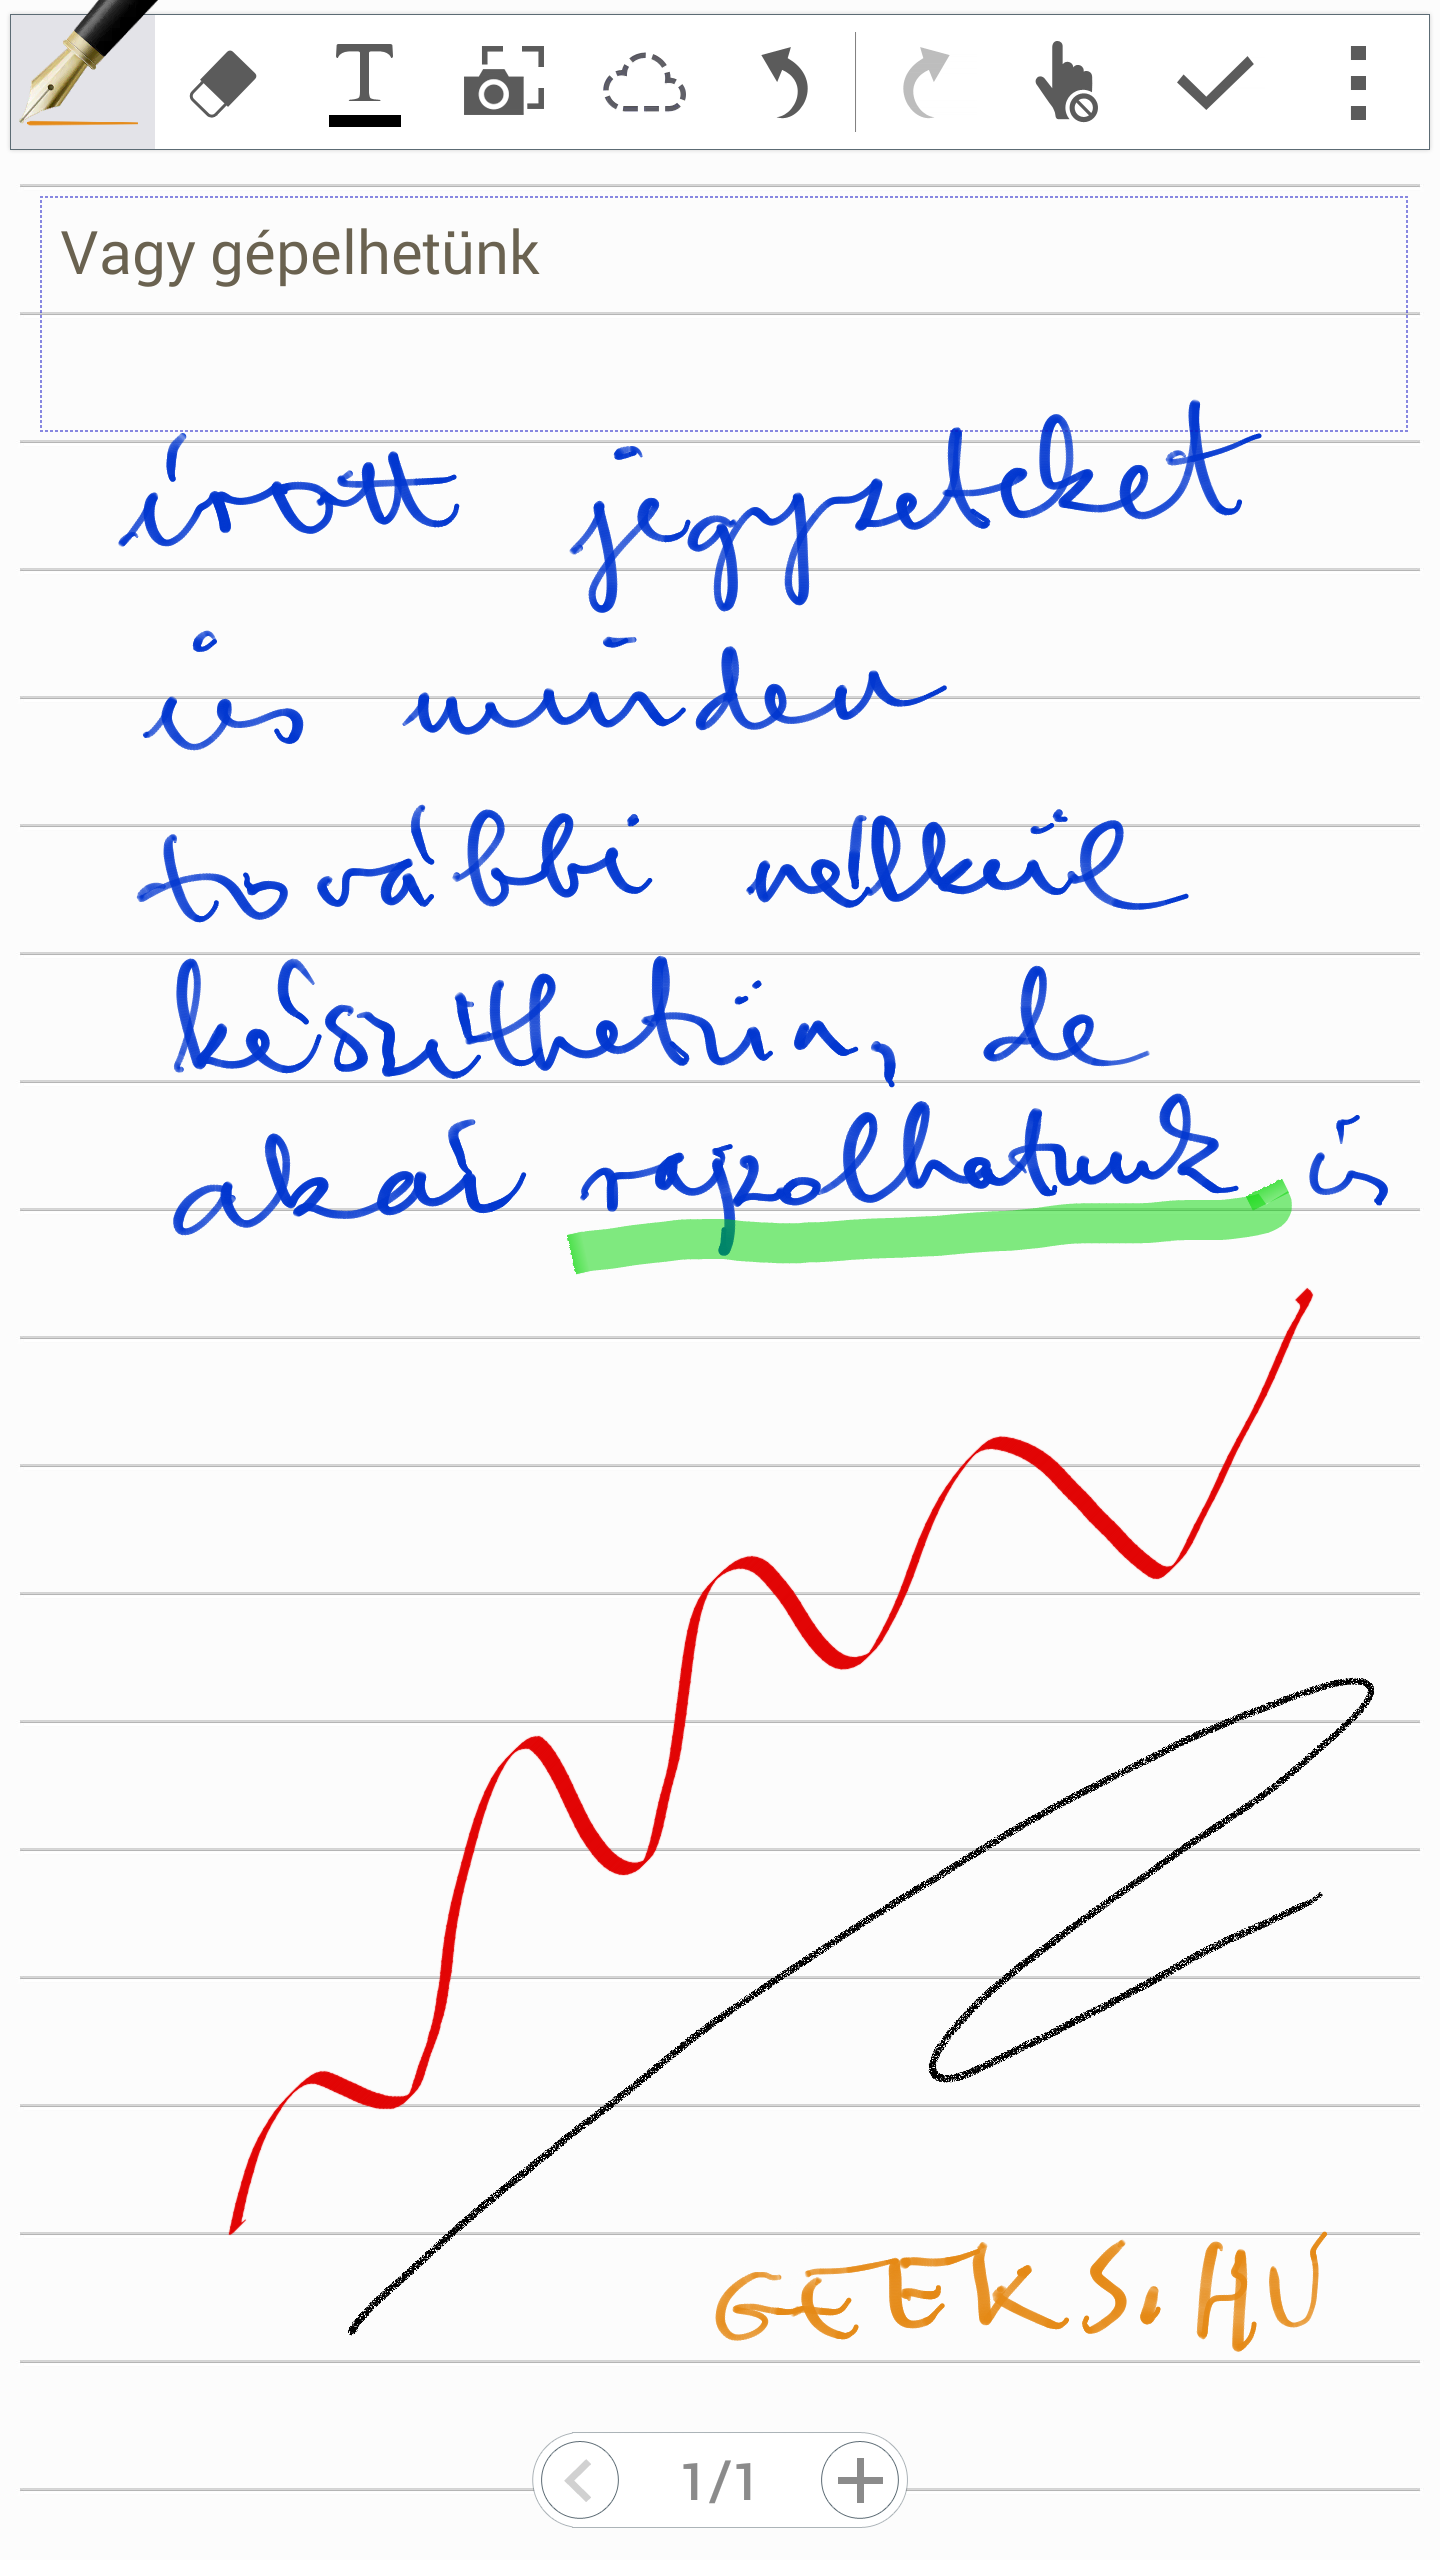 T
Vagy gépelhetünk
írott jegyzeteket
és minden
további nélkül
készíthetün, de
akár rajzolhatunk is
GEEKS.HU
1/1